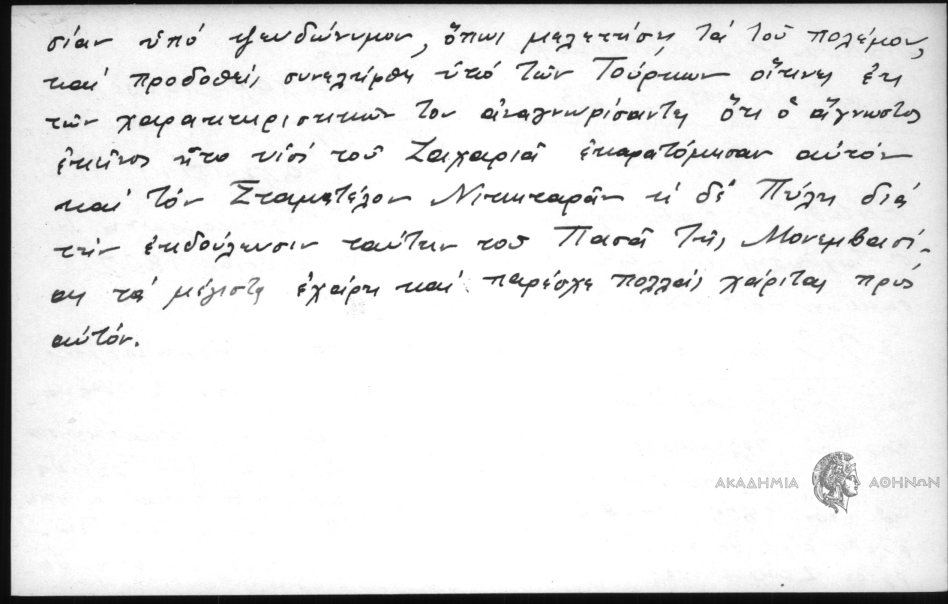 σίαν ὑπό ψευδώνυμον, ὅπως μελετήσῃ τά τοῦ πολέμου,
καί προδοθείς συνελήφθη ὑπό τῶν Τούρκων οἵτινες ἐκ
τῶν χαρακτηριστικῶν του ἀναγνωρίσαντες ὅτι ὁ ἄγνωστος
ἐκεῖνος ἦτο υἱός τοῦ Ζαχαριᾶ ἐκαρατόμησαν αὐτόν
καί τόν Σταματέλον Νικηταρᾶν ἡ δέ Πύλη διά
τήν ἐκδούλευσιν ταύτην τοῦ Πασᾶ τῆς Μονεμβασί-
ας τά μέγιστα ἐχάρη καί παρέσχε πολλάς χάριτας πρός
αὐτόν.
ΑΚΑΔΗΜΙΑ ΑΘΗΝΩΝ